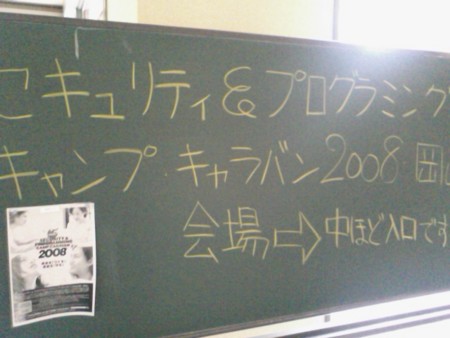 セキュリティ&プログラミング
キャンプ・キャラバン2008・岡山
会場⇨中ほど入口です
2008